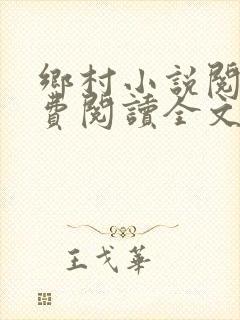 鄉村小說閱
費閱讀全文
王戈華